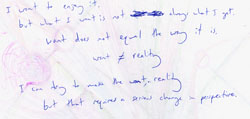 I want to enjoy it.
but what I want is not always what I get.
want does not equal the way it is.
want ≠ reality
I can try to make the want, reality
but that requires a serious change in perspective.